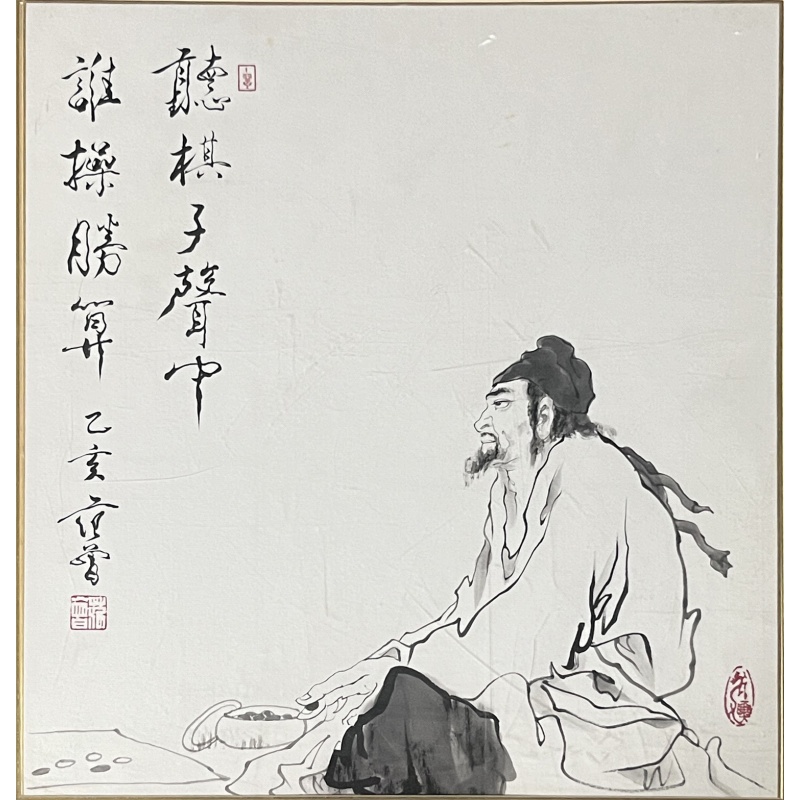 聽棋子聲中
誰操勝算
乙亥 范曾